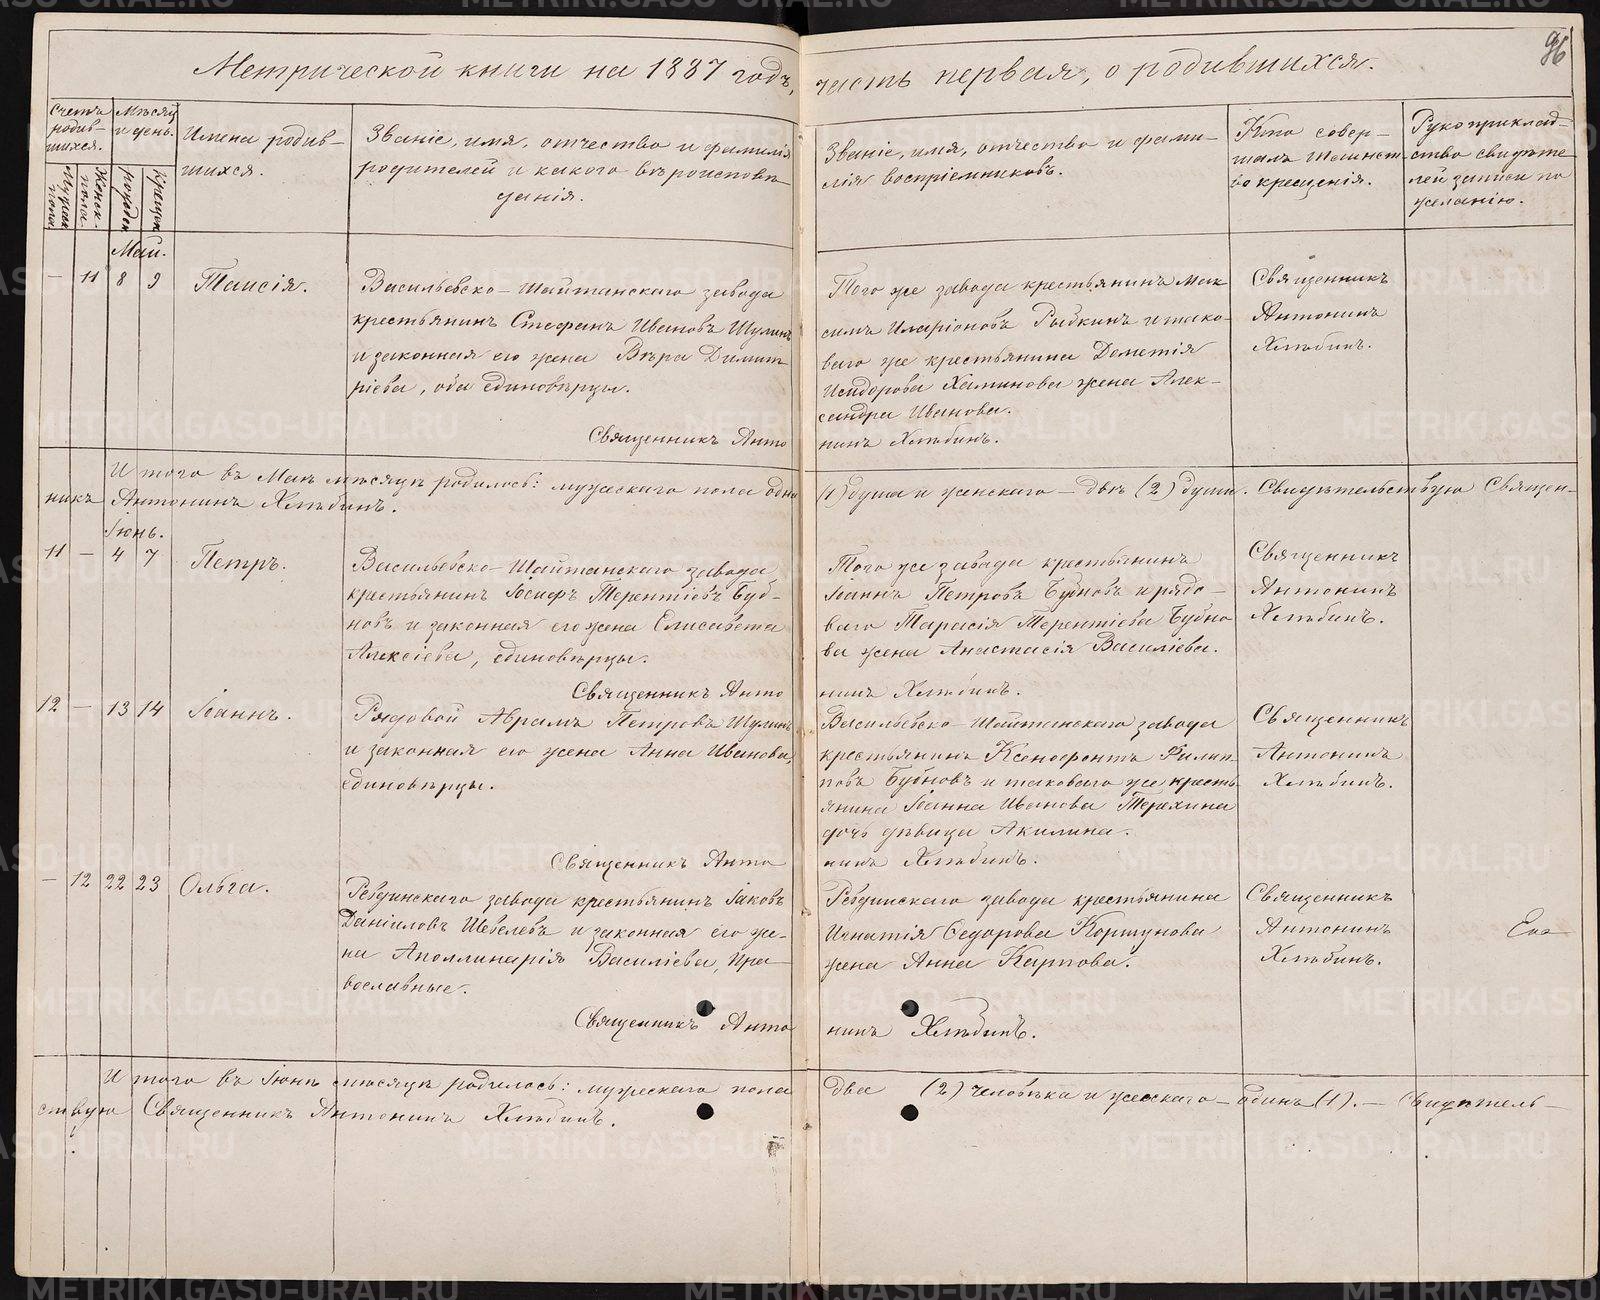 96
Метрической книги на 1887 годъ, часть первая, о родившихся.
Счетъ родив-шихся.
Мужеска пола.
Женск. пола.
Мѣсяцъ и день.
рожден
крещен
Имена родив-
шихся.
Званіе, имя, отчество и фамилія
родителей и какого вѣроисповѣ-
данія.
Званіе, имя, отчество и фами-
лія воспріемниковъ.
Кто совер-
шалъ таинст-
во крещенія.
Рукоприклад-
ство свидѣте-
лей записи по
желанію.
Май.
— 11 8 9 Таисія.
Васильевско-Шайтанскаго завода
крестьянинъ Стефанъ Ивановъ Шулинъ
и законная его жена Вѣра Димит-
ріева, оба единовѣрцы.
Того же завода крестьянинъ Мак
симъ Иларіоновъ Рыбкинъ и тако-
ваго же крестьянина Дометія
Исидорова Халинова жена Алек-
сандра Иванова.
Священникъ
Антонинъ
Хлѣбинъ.
Священникъ Анто нинъ Хлѣбинъ.
Итого въ Маѣ мѣсяцѣ родилось: мужескаго пола одна (1) душа и женскаго — двѣ (2) души. Свидѣтельствую Священ-
никъ Антонинъ Хлѣбинъ.
Іюнь.
11 — 4 7 Петръ.
Васильевско-Шайтанскаго завода
крестьянинъ Іосифъ Терентіевъ Буб-
новъ и законная его жена Елисавета
Алексіева, единовѣрцы.
Того же завода крестьянинъ
Іоаннъ Петровъ Бубновъ и рядо-
ваго Тарасія Терентіева Бубно
ва жена Анастасія Василіева.
Священникъ
Антонинъ
Хлѣбинъ.
Священникъ Анто нинъ Хлѣбинъ.
12 — 13 14 Іоаннъ.
Рядовой Аврамъ Петровъ Шулинъ
и законная его жена Анна Иванова,
единовѣрцы.
Васильевско-Шайтанскаго завода
крестьянинъ Ксенофонтъ Филип-
повъ Бубновъ и таковаго же кресть-
янина Іоанна Иванова Терехина
дочь дѣвица Акилина.
Священникъ
Антонинъ
Хлѣбинъ.
Священникъ Анто нинъ Хлѣбинъ.
— 12 22 23 Ольга.
Ревдинскаго завода крестьянинъ Іаковъ
Даніиловъ Шевелевъ и законная его же-
на Аполлинарія Василіева, пра-
вославные.
Ревдинскаго завода крестьянина
Игнатія Ѳедорова Коршунова
жена Анна Карпова.
Священникъ
Антонинъ
Хлѣбинъ.
Священникъ Анто нинъ Хлѣбинъ.
Итого въ Іюнѣ мѣсяцѣ родилось: мужескаго пола два (2) человѣка и женскаго — одинъ (1). — Свидѣтель-
ствую Священникъ Антонинъ Хлѣбинъ.
METRIKI.GASO-URAL.RU